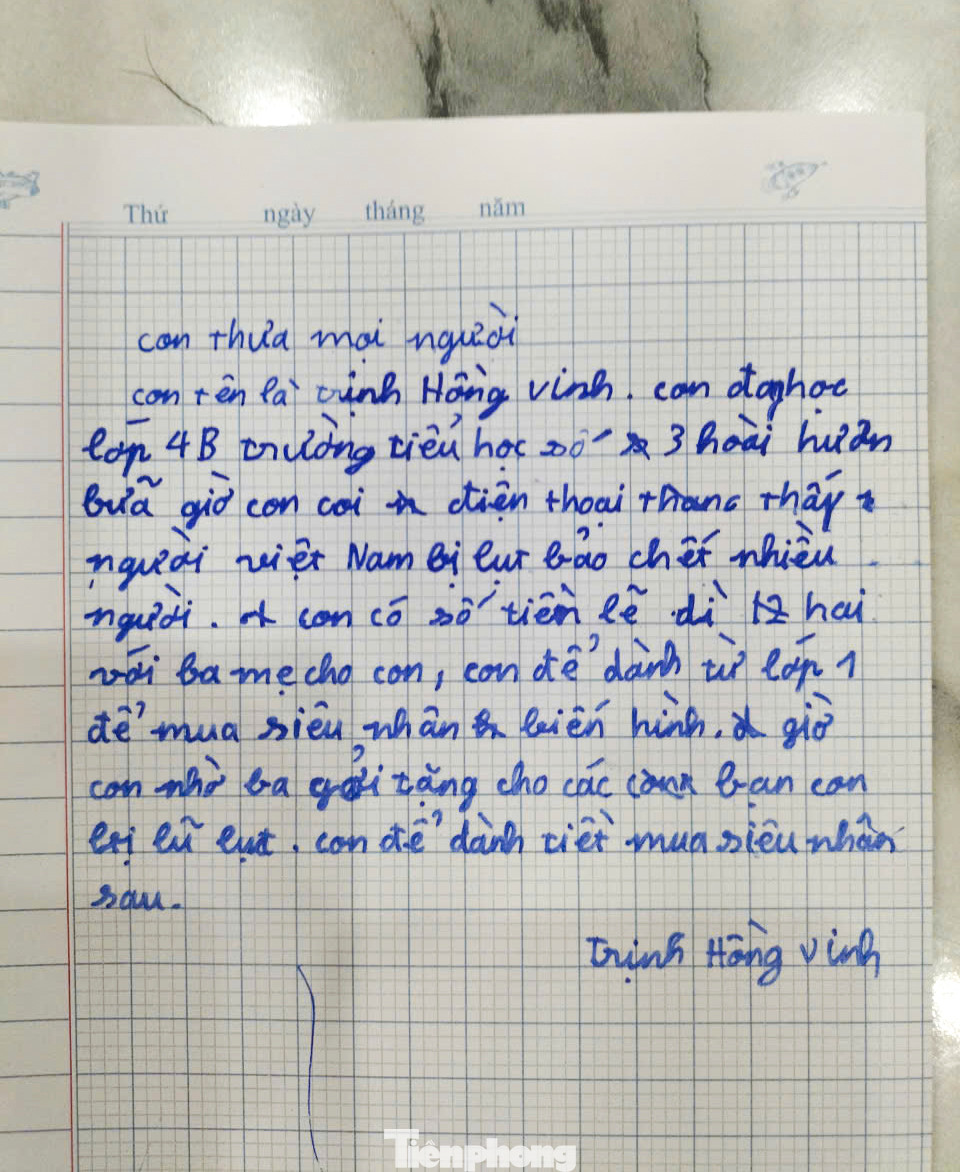 Thứ ngày tháng năm
con thưa mọi người
con tên là trịnh Hồng vinh. con đaghọc
lớp 4B trường tiểu học số 3 hoài hươn
bữa giờ con coi điện thoại thấy
người việt Nam bị lụt bảo chết nhiều
người. con có số tiền lẽ dì 12 hai
với ba mẹ cho con, con để dành từ lớp 1
để mua siêu nhân biến hình. giờ
con nhờ ba gởi tặng cho các bạn con
bị lũ lụt. con để dành tiết mua siêu nhân
sau.
Trịnh Hồng Vinh
Tiênphong